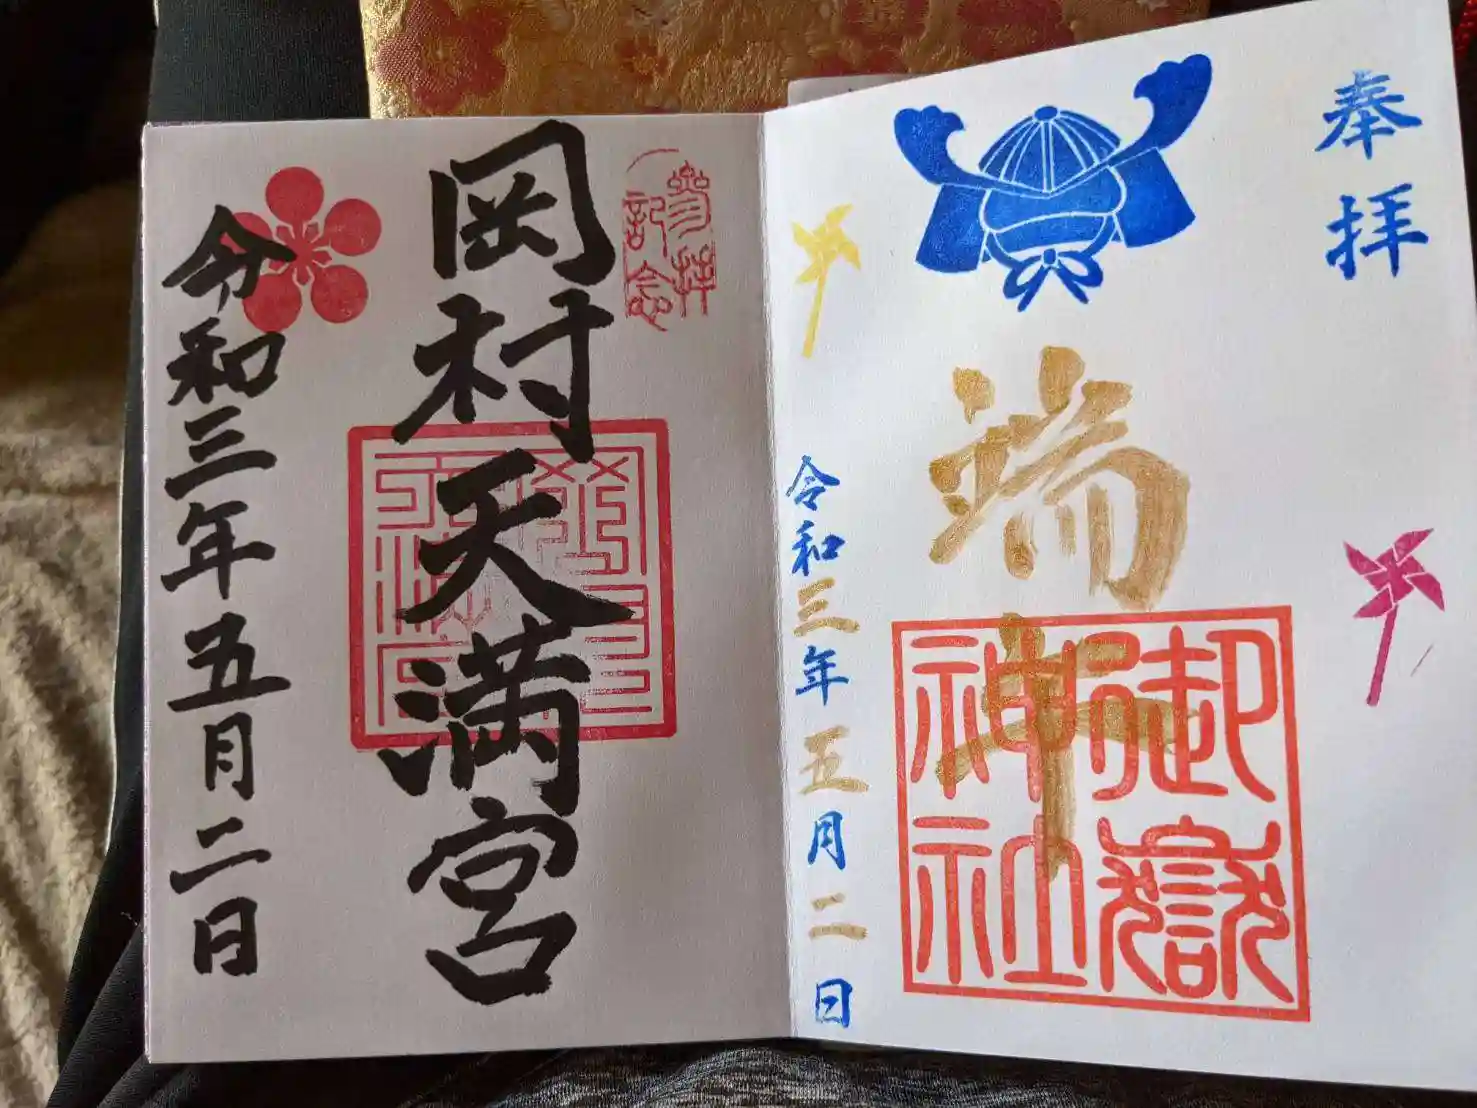 奉拝
端午
御嶽
神社
令和三年五月二日
參拝
記念
岡村天満宮
令和三年五月二日